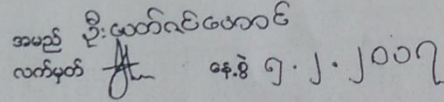 အမည် ဦးဇော်ဝင်မောင်
လက်မှတ် နေ့စွဲ ၅.၂.၂၀၀၇